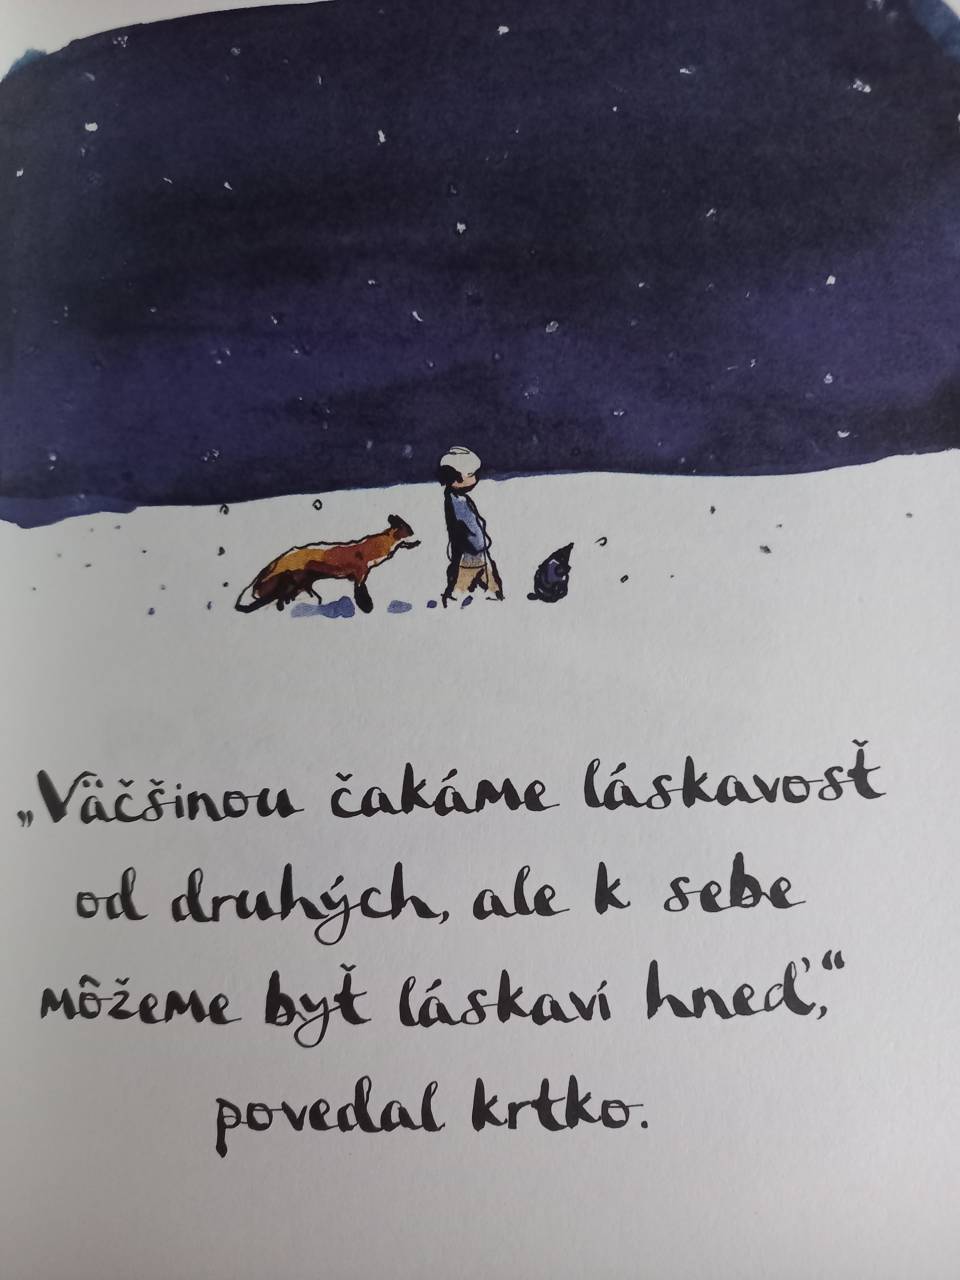 „Väčšinou čakáme láskavosť
od druhých, ale k sebe
môžeme byť láskaví hneď,“
povedal krtko.